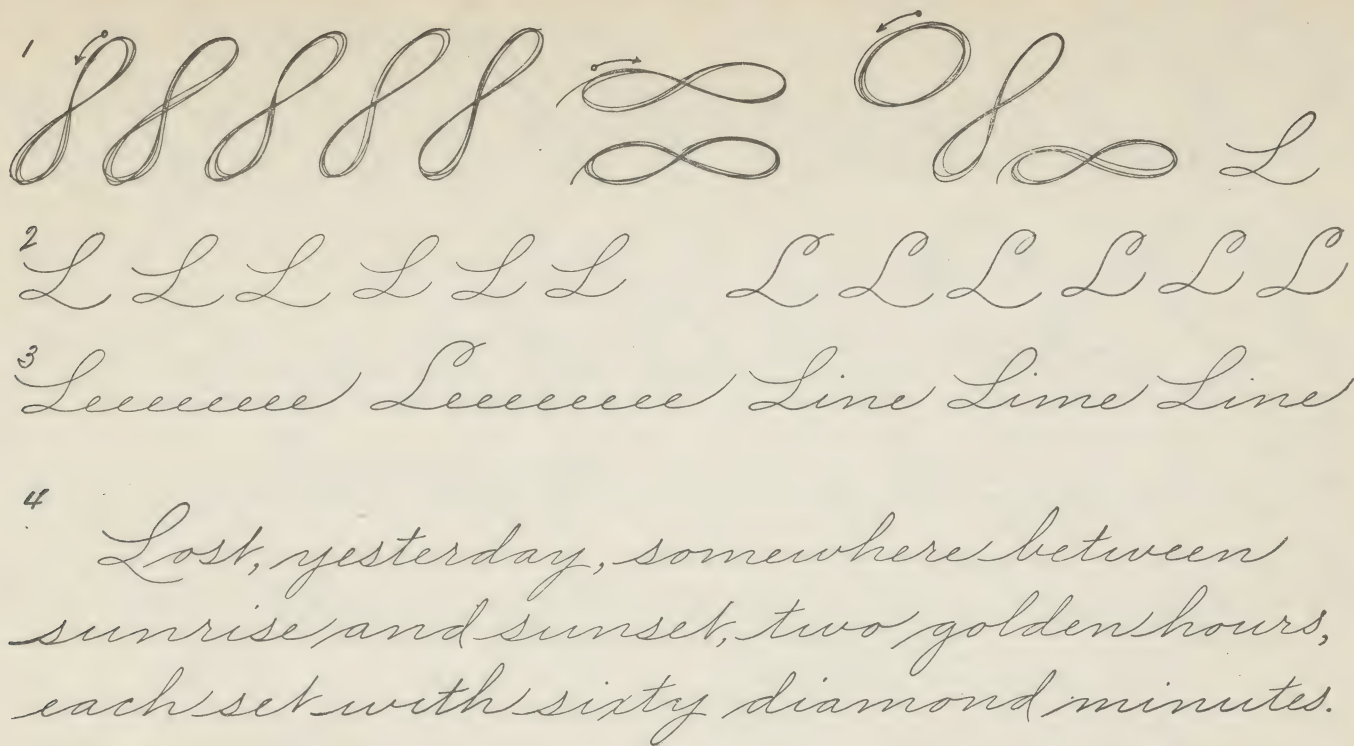 1 L
2 L L L L L L L L L L L L
3 Leeeeeeee Leeeeeeee Line Lime Line
4
Lost, yesterday, somewhere between
sunrise and sunset, two golden hours,
each set with sixty diamond minutes.